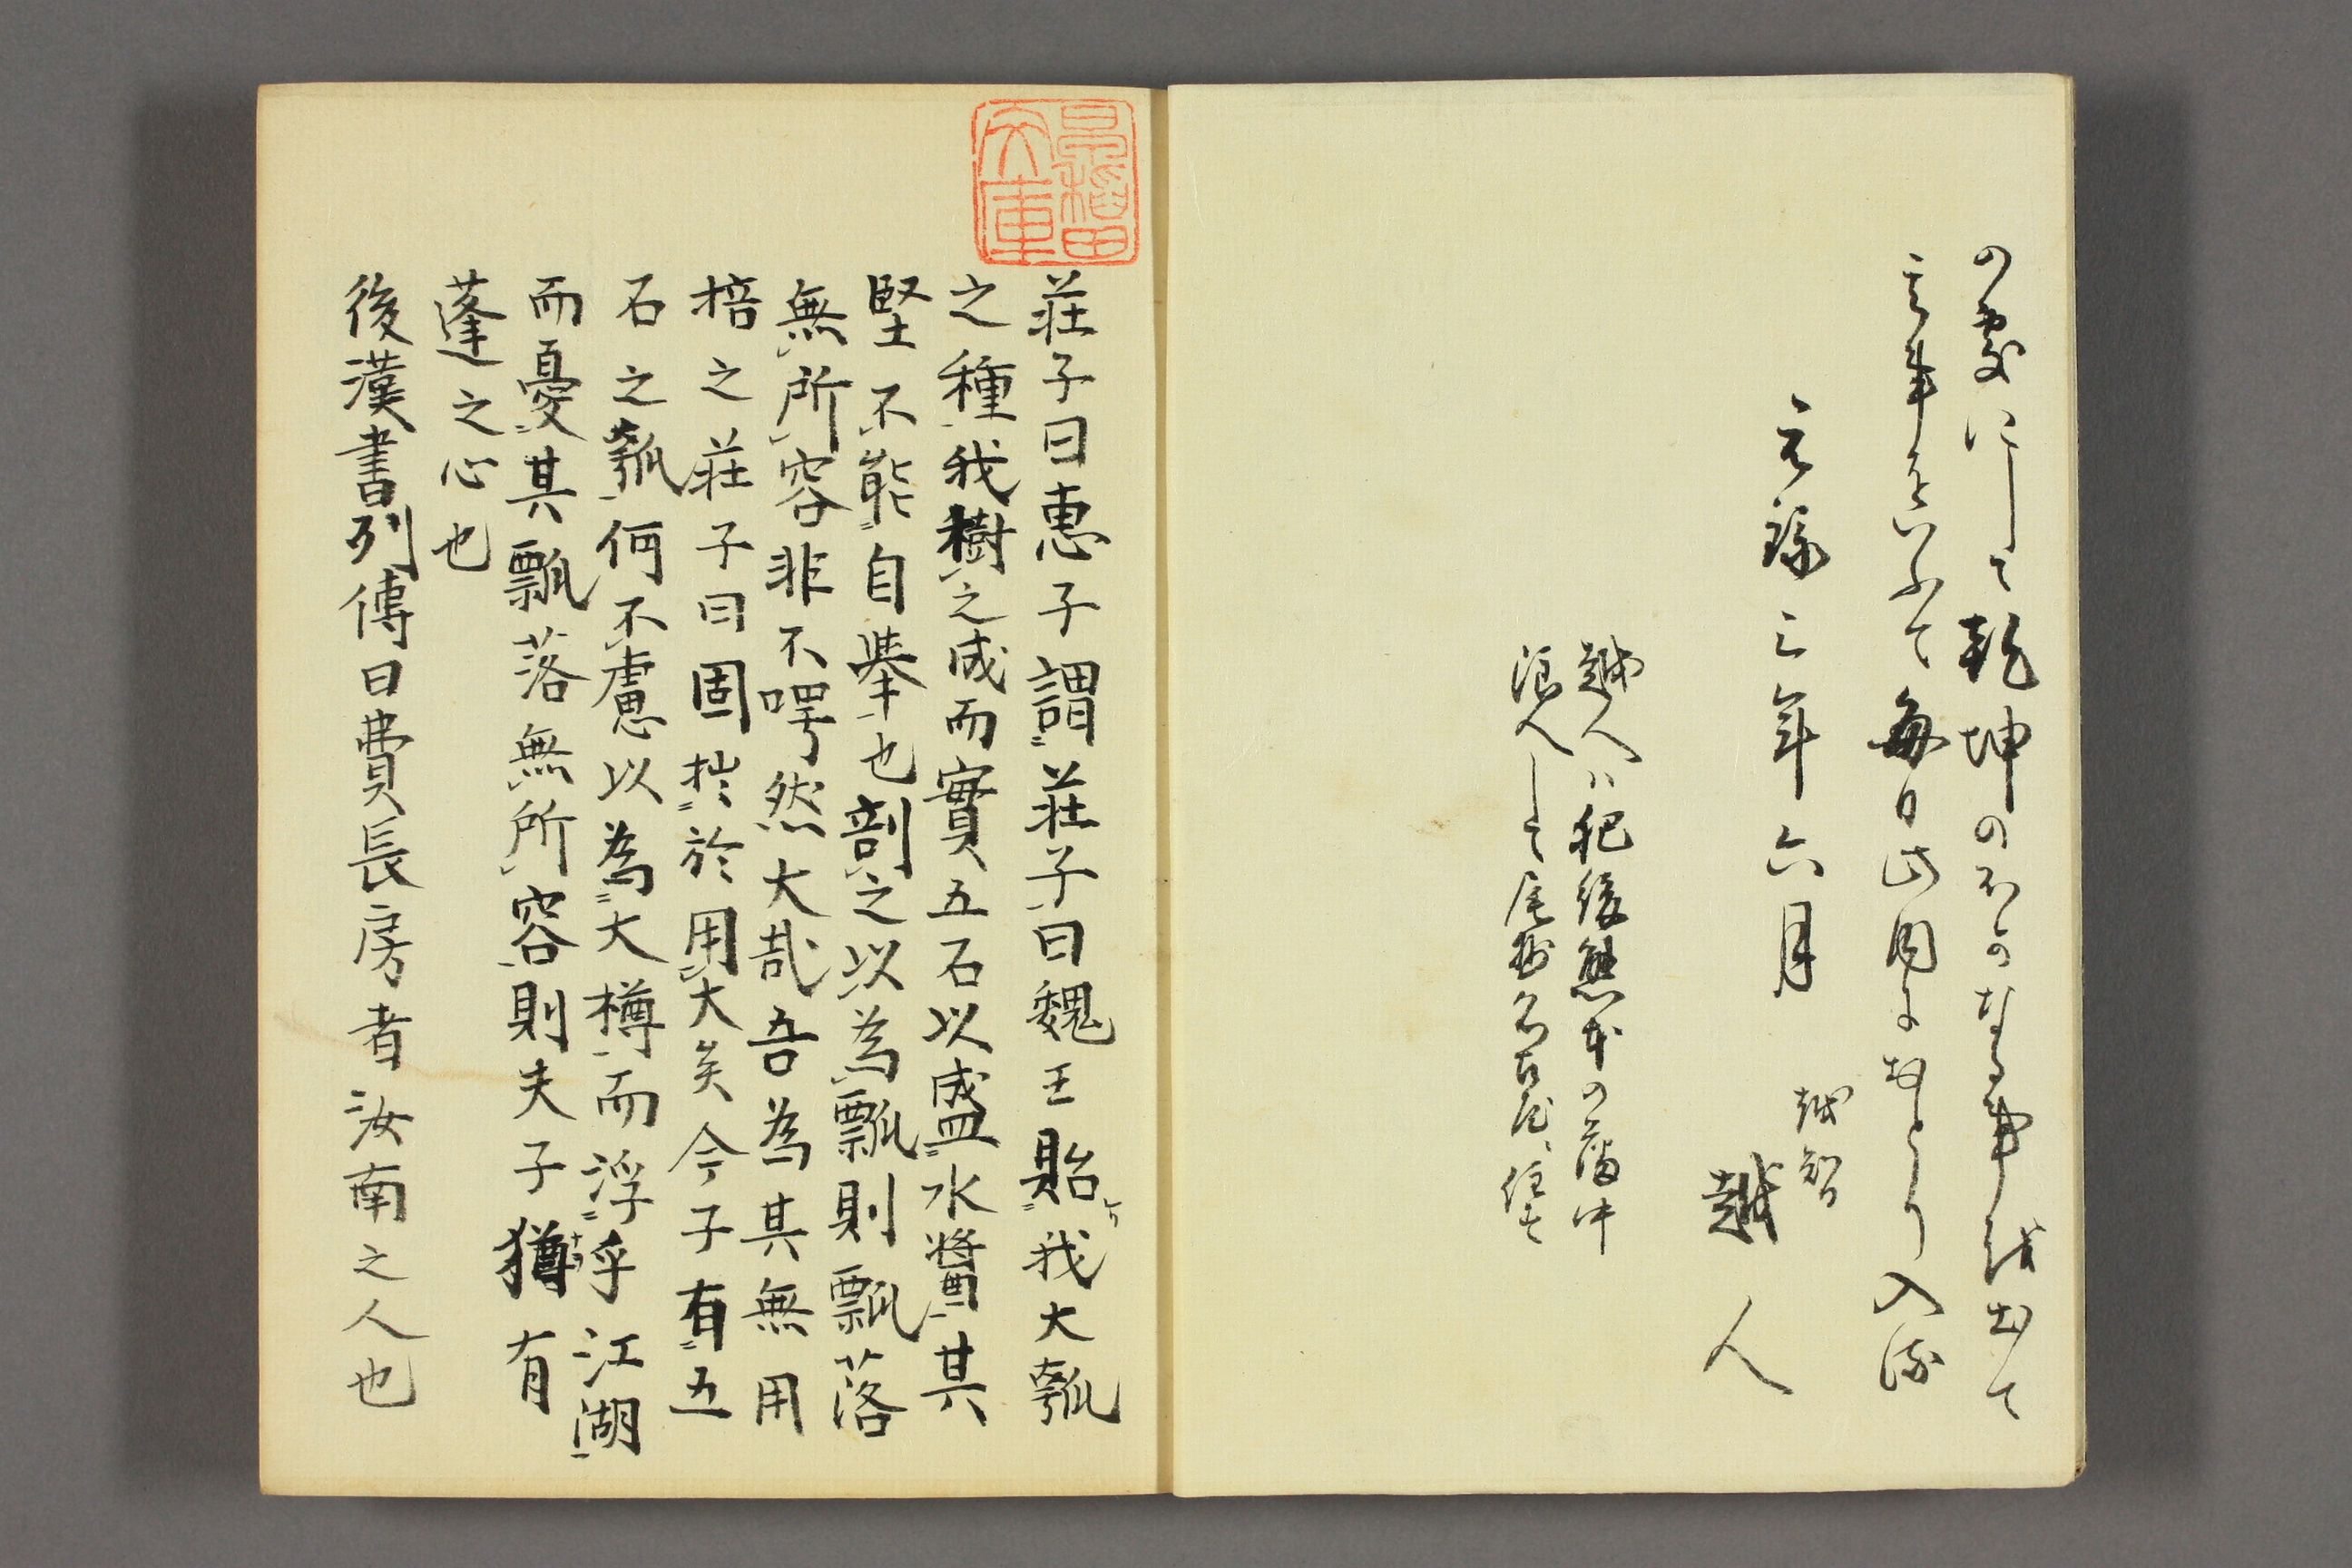 の裏にして乾坤の外なる事を出て
其事をいふて毎日此内におとり入
元禄三年六月
越智
越人
越人ハ肥後熊本の藩中
浪人して尾州名古屋ニ住す
莊子曰惠子謂莊子曰魏王貽我大瓠
之種我樹之成而實五石以盛水漿其
堅不能自擧也剖之以為瓢則瓢落
無所容非不㗁然大哉吾為其無用
掊之莊子曰固拙於用大矣今子有五
石之瓠何不慮以為大樽而浮乎江湖
而憂其瓢落無所容則夫子猶有
蓬之心也
後漢書列傳曰費長房者汝南之人也